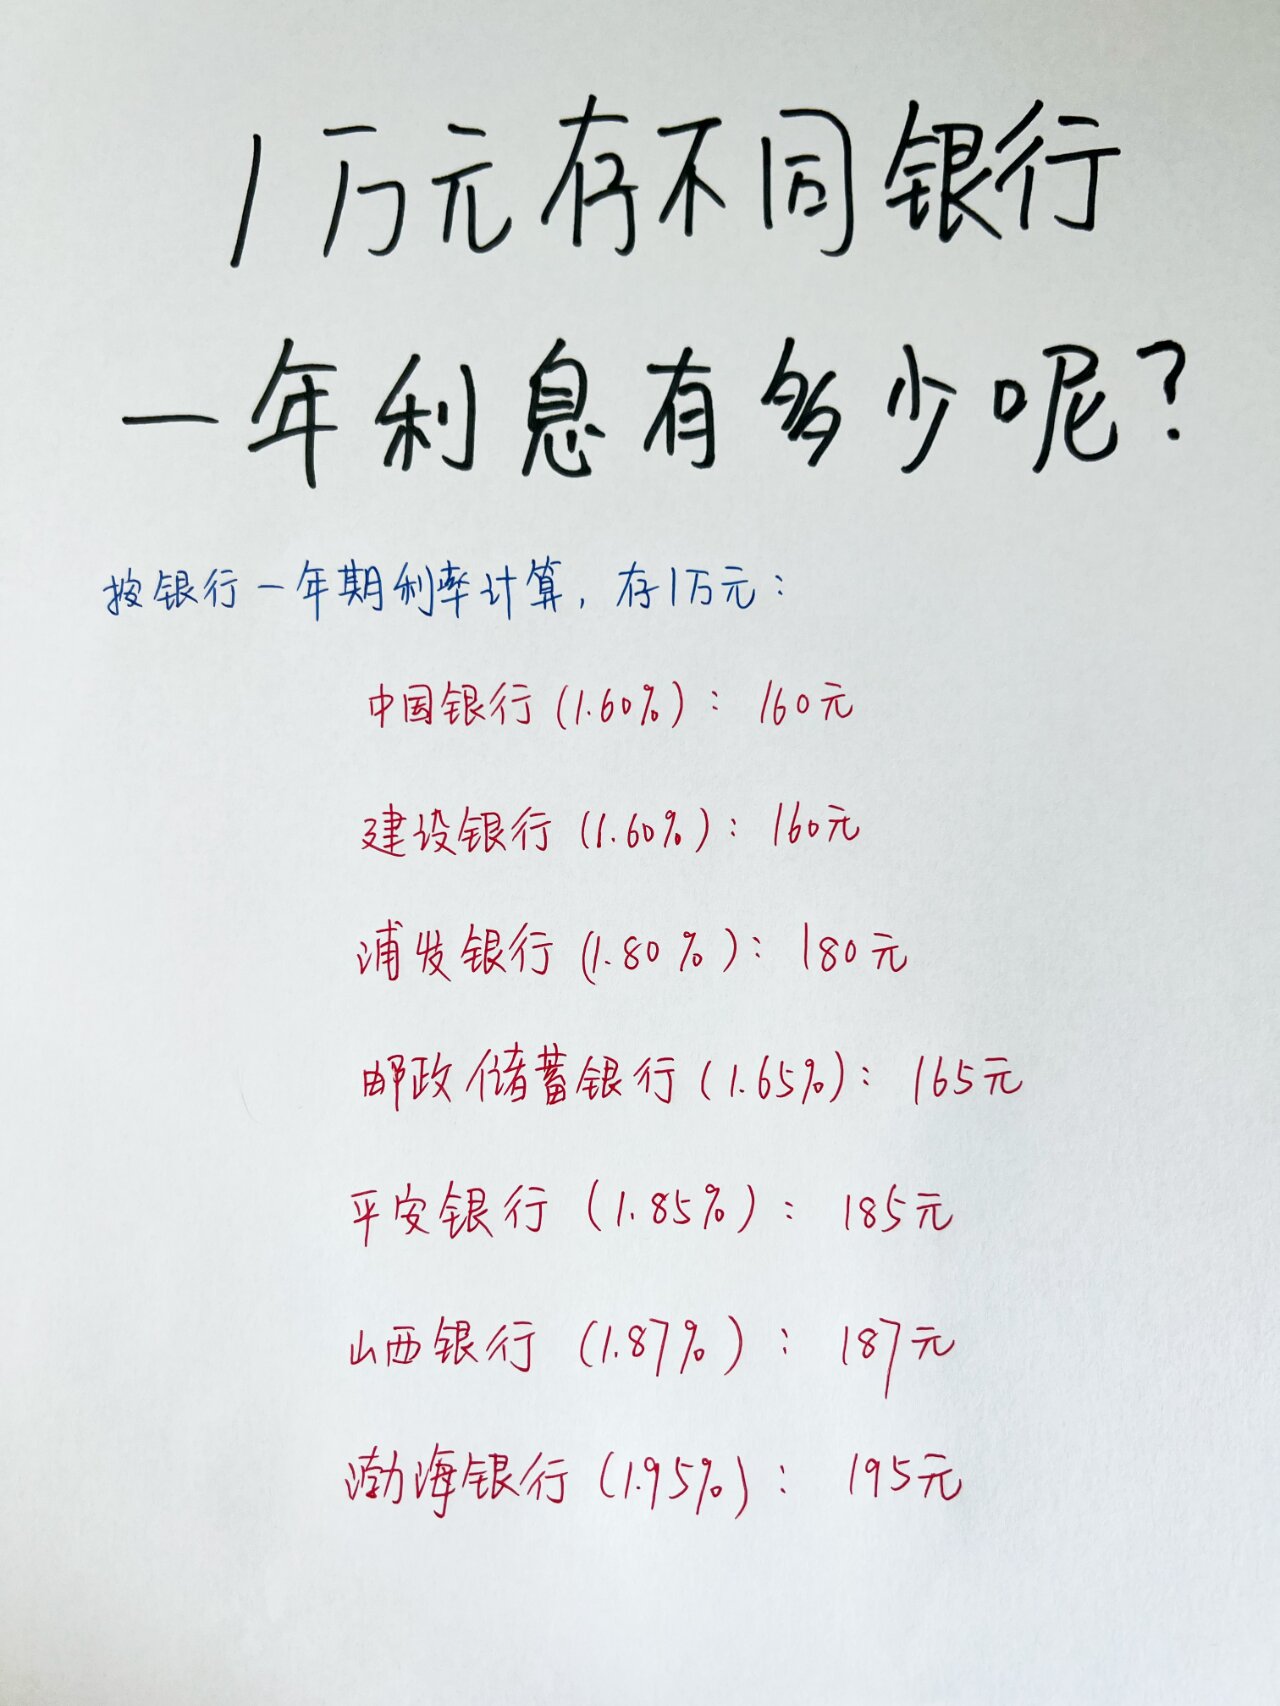 1万元存不同银行
一年利息有多少呢?
按银行一年期利率计算,存1万元:
中国银行(1.60%):160元
建设银行(1.60%):160元
浦发银行(1.80%):180元
邮政储蓄银行(1.65%):165元
平安银行(1.85%):185元
山西银行(1.87%):187元
渤海银行(1.95%):195元